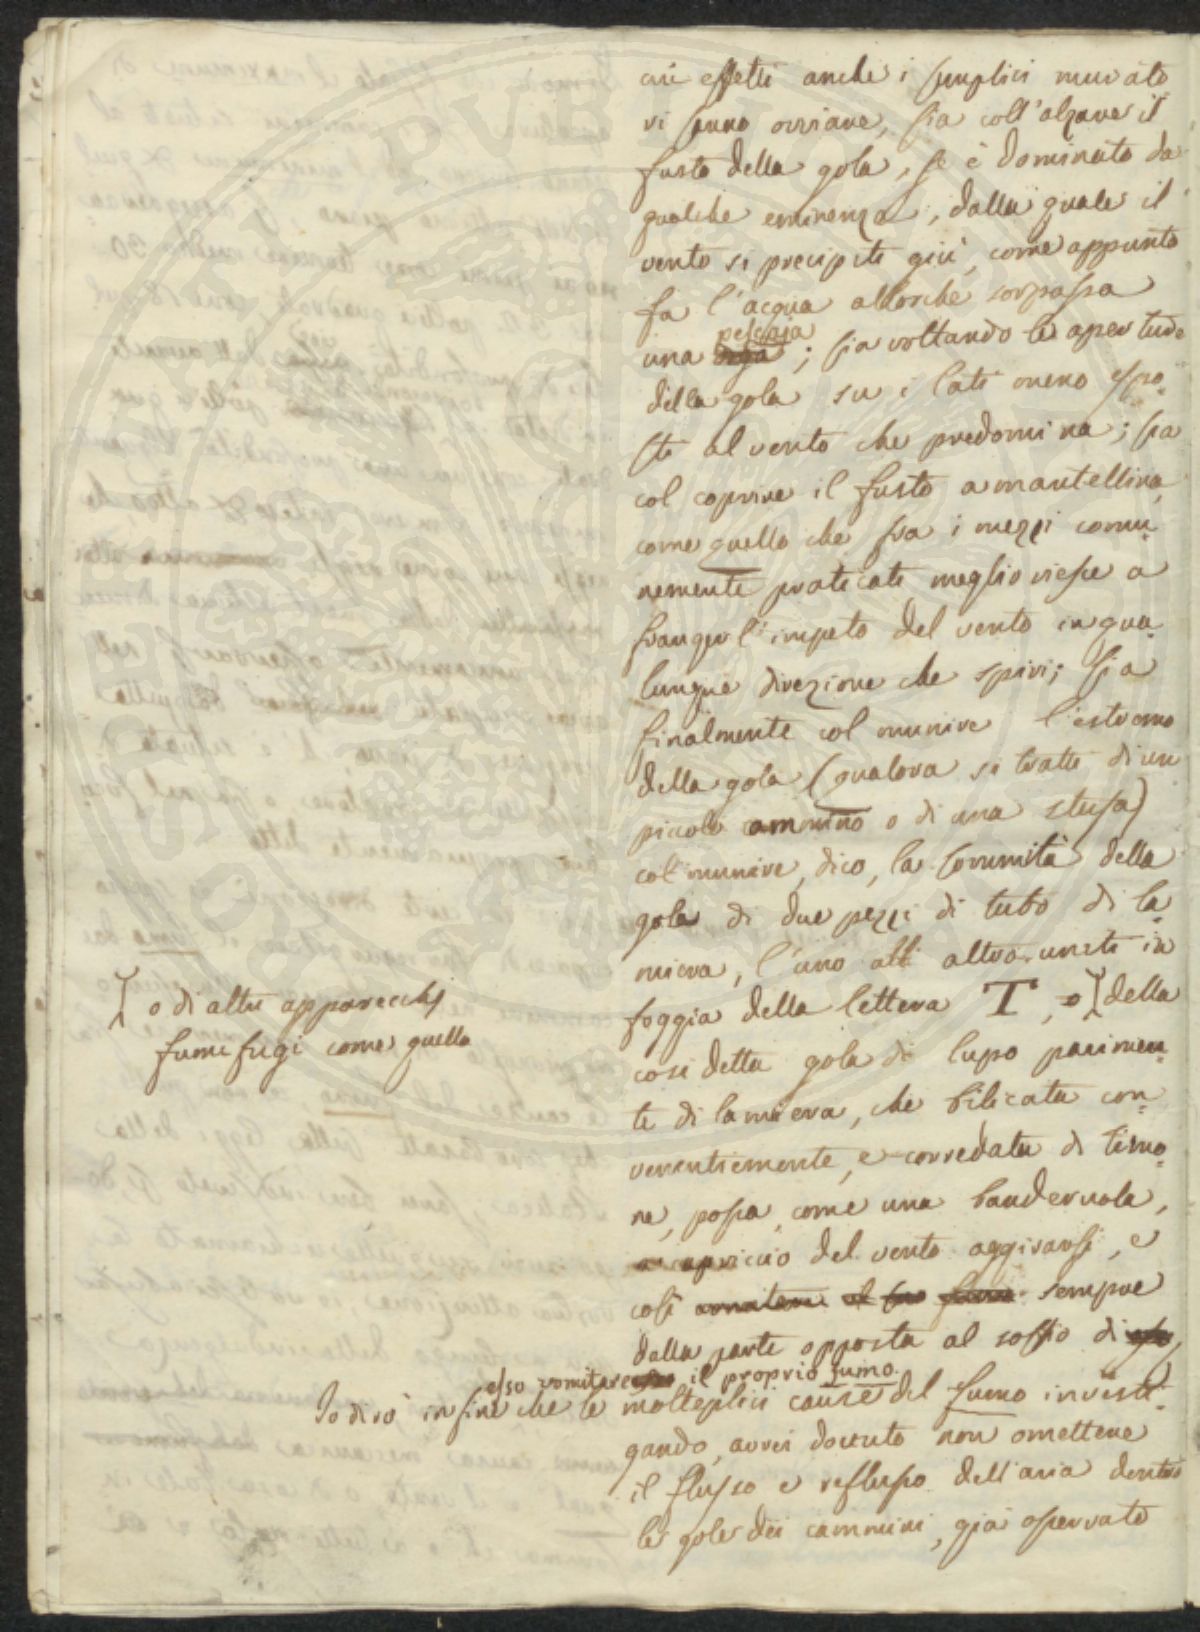 cui effetti anche i semplici murato
ri sanno ovviare, sia coll'alzare il
fusto della gola, se è dominato da
qualche eminenza, dalla quale il
vento si precipiti giù, come appunto
fa l'acqua allorché sorpassa
pescaja
una ; sia voltando le aperture
della gola su i lati meno espo=
sti al vento che predomina; sia
col coprire il fusto a mantellina,
come quello che fra i mezzi comu=
nemente praticati meglio riesce a
franger l'impeto del vento in qua=
lunque direzione che spiri; sia
finalmente col munire l'estremo
della gola (qualora si tratti di un
piccolo cammino o di una stufa)
col munire, dico, la sommità della
gola di due pezzi di tubo di la=
miera, l'uno all altro uniti in
foggia della lettera T, o della
o di altri apparecchj
fumifugi come quello
così detta gola di lupo parimen=
te di lamiera, che bilicata con=
venientemente, e corredata di timo=
ne, possa, come una banderuola,
a capriccio del vento aggirarsi, e
così sempre
dalla parte opposta al soffio di
esso vomitare il proprio fumo.
Io dirò in fine che le molteplici cause del fumo investi=
gando, avrei dovuto non omettere
il flusso e reflusso dell'aria dentro
le gole dei cammini, già osservato